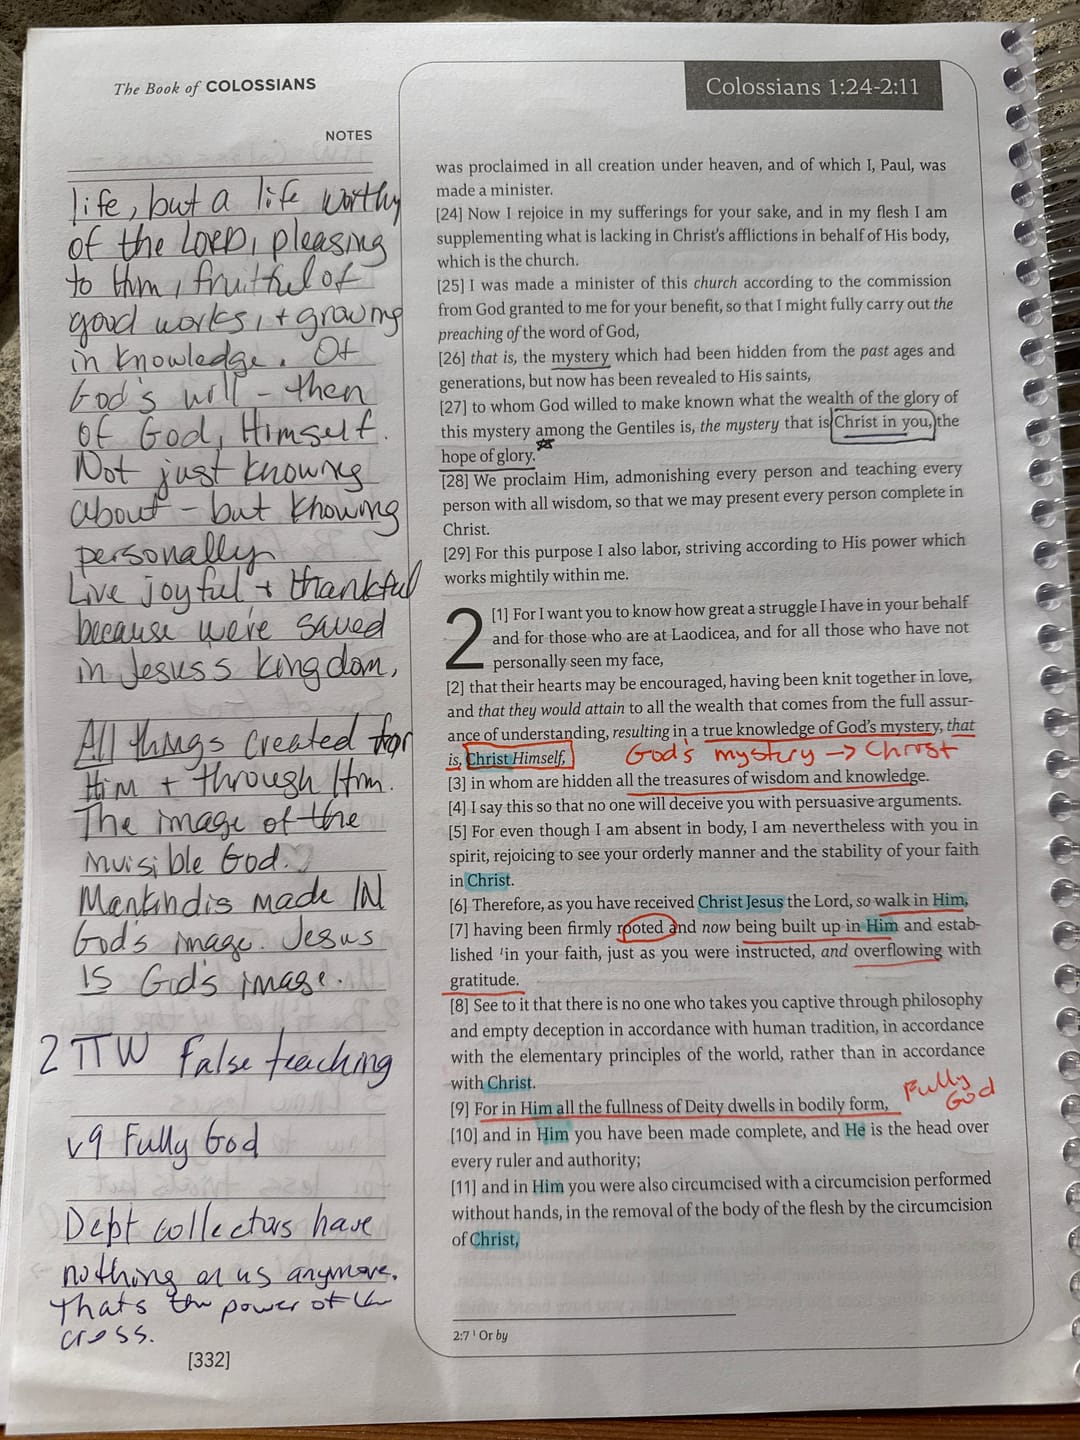 The Book of COLOSSIANS
NOTES
life, but a life worthy
of the LORD, pleasing
to Him, fruitful of
good works, + growing
in knowledge. Of
God's will - then
of God, Himself.
Not just knowing
about - but knowing
personally
Live joyful + thankful
because we're saved
in Jesus's kingdom,
All things created for
Him + through Him.
The image of the
invisible God.
Mankind is made IN
God's image. Jesus
IS God's image.
2 TTW False teaching
v9 Fully God
Dept collectors have
nothing on us anymore.
Thats the power of the
cross.
[332]
Colossians 1:24-2:11
was proclaimed in all creation under heaven, and of which I, Paul, was
made a minister.
[24] Now I rejoice in my sufferings for your sake, and in my flesh I am
supplementing what is lacking in Christ's afflictions in behalf of His body,
which is the church.
[25] I was made a minister of this church according to the commission
from God granted to me for your benefit, so that I might fully carry out the
preaching of the word of God,
[26] that is, the mystery which had been hidden from the past ages and
generations, but now has been revealed to His saints,
[27] to whom God willed to make known what the wealth of the glory of
this mystery among the Gentiles is, the mystery that is Christ in you, the
hope of glory.
[28] We proclaim Him, admonishing every person and teaching every
person with all wisdom, so that we may present every person complete in
Christ.
[29] For this purpose I also labor, striving according to His power which
works mightily within me.
2 [1] For I want you to know how great a struggle I have in your behalf
and for those who are at Laodicea, and for all those who have not
personally seen my face,
[2] that their hearts may be encouraged, having been knit together in love,
and that they would attain to all the wealth that comes from the full assur-
ance of understanding, resulting in a true knowledge of God's mystery, that
is, Christ Himself, God's mystery → Christ
[3] in whom are hidden all the treasures of wisdom and knowledge.
[4] I say this so that no one will deceive you with persuasive arguments.
[5] For even though I am absent in body, I am nevertheless with you in
spirit, rejoicing to see your orderly manner and the stability of your faith
in Christ.
[6] Therefore, as you have received Christ Jesus the Lord, so walk in Him,
[7] having been firmly rooted and now being built up in Him and estab-
lished ¹in your faith, just as you were instructed, and overflowing with
gratitude.
[8] See to it that there is no one who takes you captive through philosophy
and empty deception in accordance with human tradition, in accordance
with the elementary principles of the world, rather than in accordance
with Christ.
Fully
God
[9] For in Him all the fullness of Deity dwells in bodily form,
[10] and in Him you have been made complete, and He is the head over
every ruler and authority;
[11] and in Him you were also circumcised with a circumcision performed
without hands, in the removal of the body of the flesh by the circumcision
of Christ,
2:7 ¹ Or by